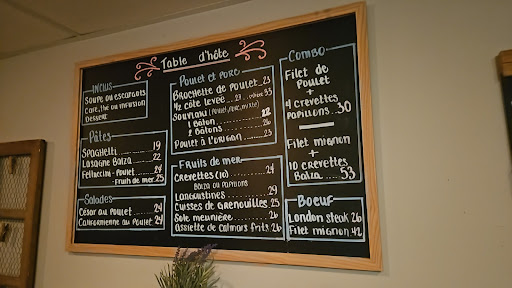 Table d'hôte
Inclus
Soupe ou escargots
Café, thé ou infusion
Dessert
Pâtes
Spaghetti 19
Lasagne Baiza 22
Fettuccini - Poulet 24
- Fruits de mer 25
Salades
César au poulet 24
Californienne au poulet 24
Poulet et porc
Brochette de poulet 23
1/2 côte levée 27
Souvlaki (Poulet, porc, mixte)
1 Bâton 22
2 Bâtons 26
Poulet à l'origan 23
Fruits de mer
Crevettes (10) 24
Baiza ou papillons
Langoustines 29
Cuisses de grenouilles 25
Sole meunière 26
Assiette de calmars frits 26
Combo
Filet de
Poulet
+
4 crevettes
papillons 30
Filet mignon
+
10 crevettes
Baiza 53
Boeuf
London steak 26
Filet mignon 42